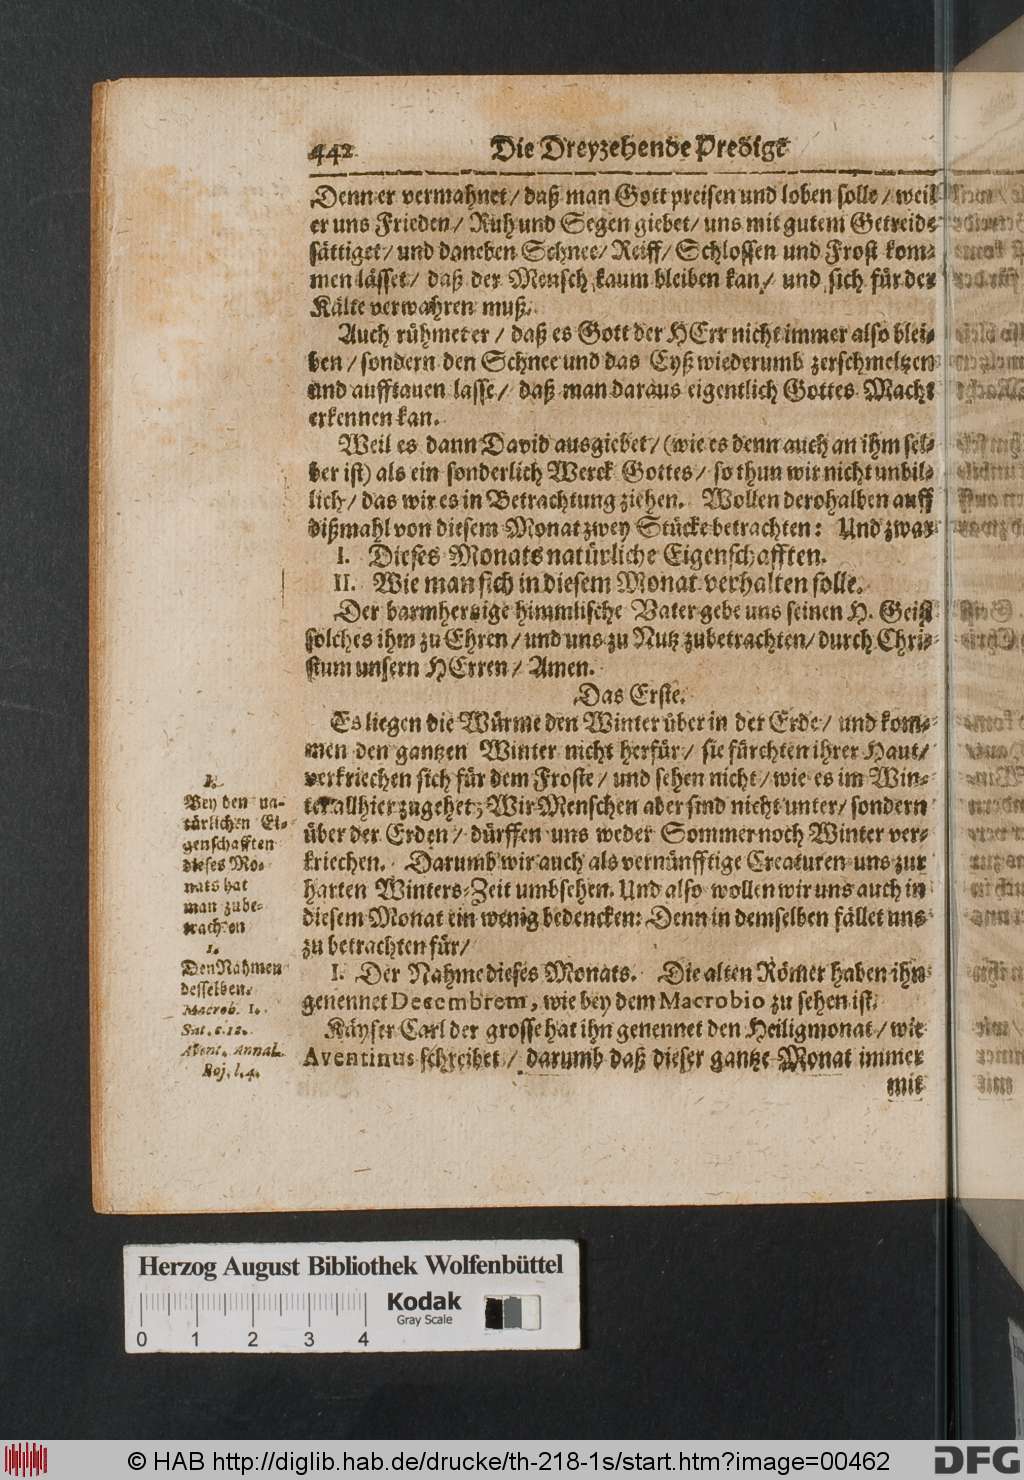 442 Die Dreyzehende Predigt
Denn er vermahnet / daß man Gott preisen und loben solle / weil
er uns Frieden / Ruh und Segen giebet / uns mit gutem Getreide
sättiget / und daneben Schnee / Reiff / Schlossen und Frost kom-
men lässet / daß der Mensch kaum bleiben kan / und sich für der
Kälte verwahren muß.
Auch rühmet er / daß es Gott der HErr nicht immer also blei-
ben / sondern den Schnee und das Eyß wiederumb zerschmeltzen
und aufftauen lasse / daß man daraus eigentlich Gottes Macht
erkennen kan.
Weil es dann David ausgiebet / (wie es denn auch an ihm sel-
ber ist) als ein sonderlich Werck Gottes / so thun wir nicht unbil-
lich / das wir es in Betrachtung ziehen. Wollen derohalben auff
dißmahl von diesem Monat zwey Stücke betrachten: Und zwar
I. Dieses Monats natürliche Eigenschafften.
II. Wie man sich in diesem Monat verhalten solle.
Der barmhertzige himmlische Vater gebe uns seinen H. Geist
solches ihm zu Ehren / und uns zu Nutz zubetrachten / durch Chri-
stum unsern HErren / Amen.
Das Erste.
Es liegen die Würme den Winter über in der Erde / und kom-
men den gantzen Winter nicht herfür / sie fürchten ihrer Haut /
verkriechen sich für dem Froste / und sehen nicht / wie es im Win-
ter allhier zugehet; Wir Menschen aber sind nicht unter / sondern
über der Erden / dürffen uns weder Sommer noch Winter ver-
kriechen. Darumb wir auch als vernünfftige Creaturen uns zur
harten Winters-Zeit umbsehen. Und also wollen wir uns auch in
diesem Monat ein wenig bedencken: Denn in demselben fället uns
zu betrachten für /
I. Der Nahme dieses Monats. Die alten Römer haben ihn
genennet Decembrem, wie bey dem Macrobio zu sehen ist.
Käyser Carl der grosse hat ihn genennet den Heiligmonat / wie
Aventinus schreibet / darumb daß dieser gantze Monat immer
mit
I.
Bey den na-
türlichen Ei-
genschafften
dieses Mo-
nats hat
man zube-
trachten
1.
Den Nahmen
desselben.
Macrob. I.
Sat. c. 12.
Avent. Annal.
Boj. l. 4.
Herzog August Bibliothek Wolfenbüttel
Kodak
Gray Scale
0 1 2 3 4
© HAB http://diglib.hab.de/drucke/th-218-1s/start.htm?image=00462
DFG